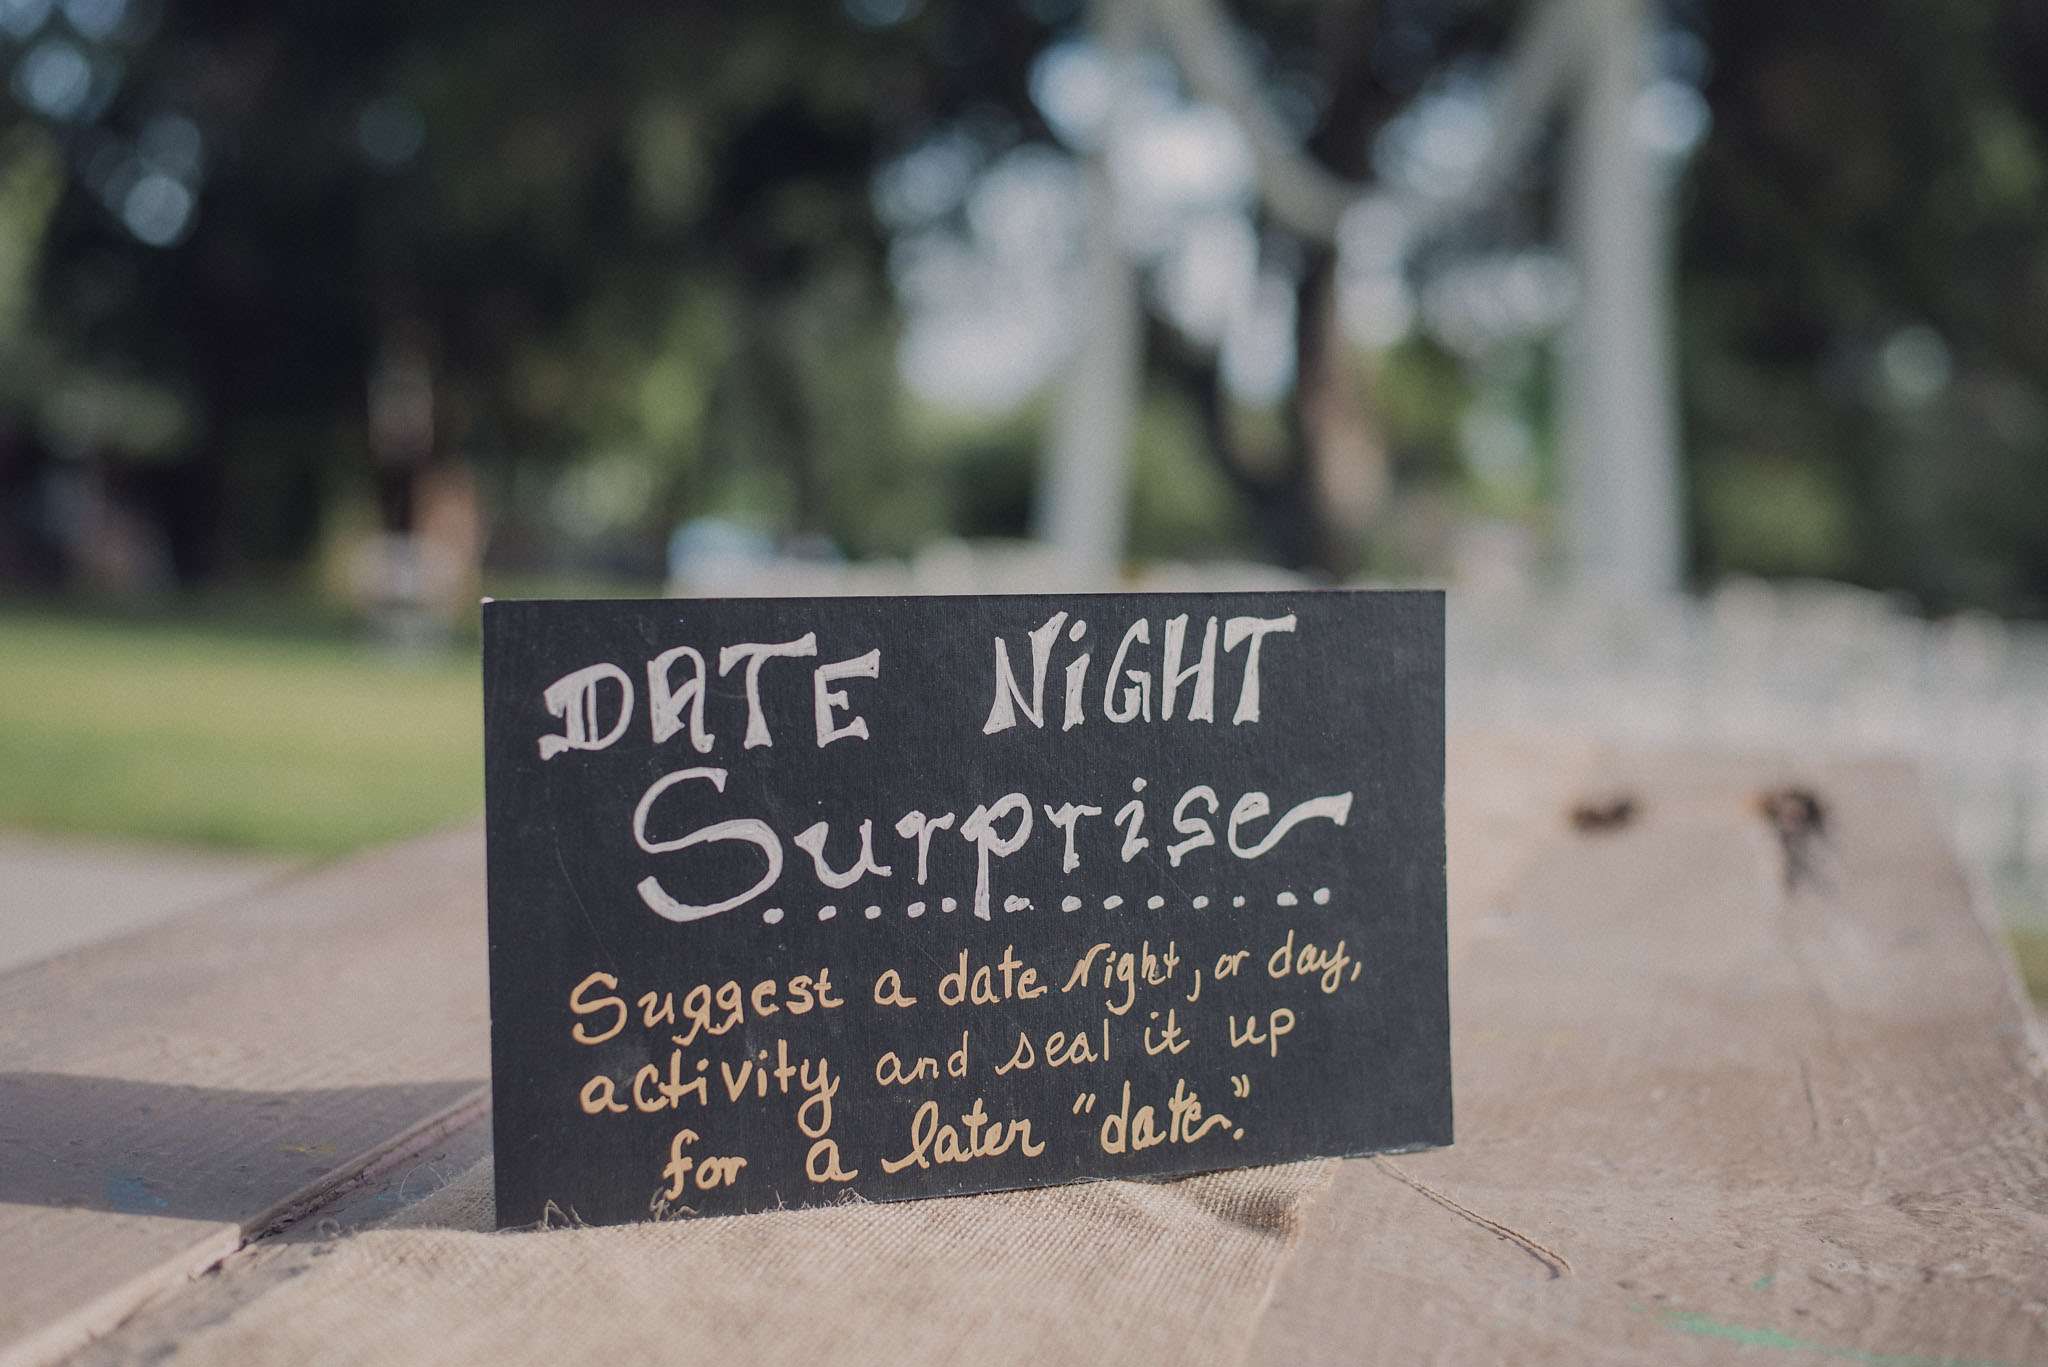 DATE NiGHT
Surprise
Suggest a date Night, or day,
activity and seal it up
for a later "date."